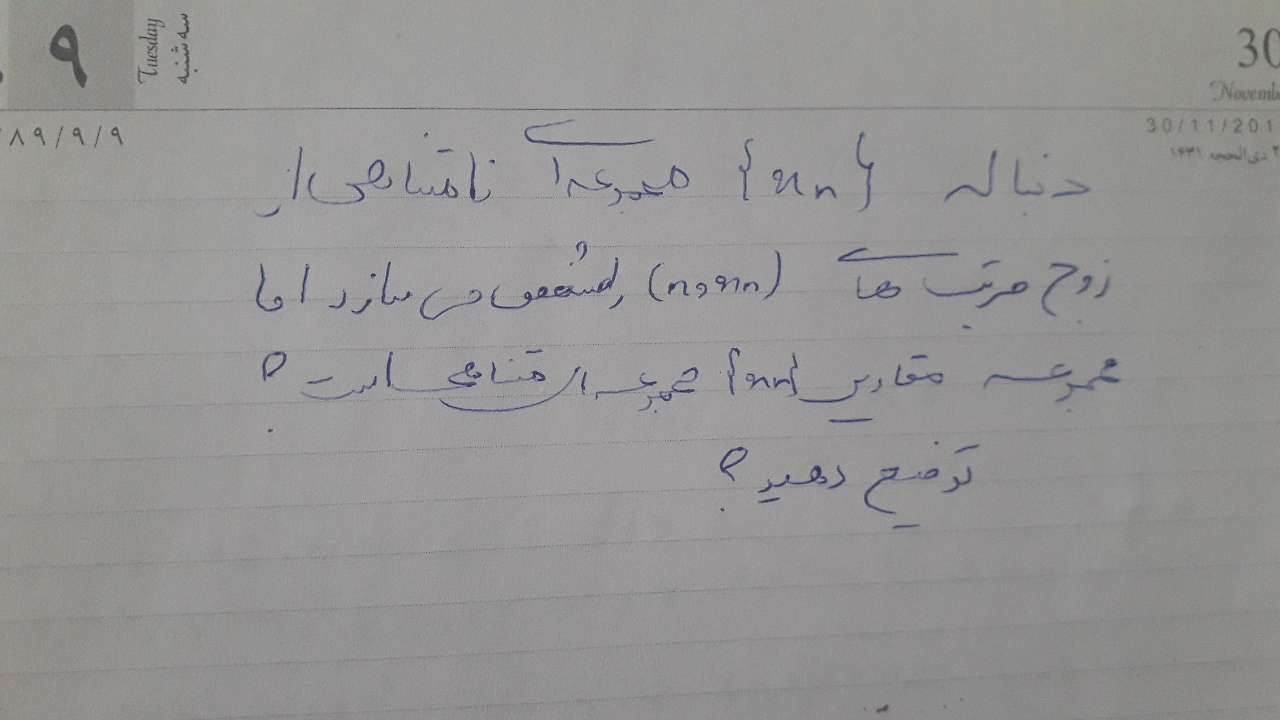 ۹
Tuesday
سه شنبه
30
Novemb
۸۹/۹/۹
30/11/201
دنباله {xn} مجموعه ای نامتناهی از
زوج مرتب های (n,xn) را مشخص می سازد اما
مجموعه مقادیر {xn} مجموعه ای متناهی است ؟
توضیح دهید ؟